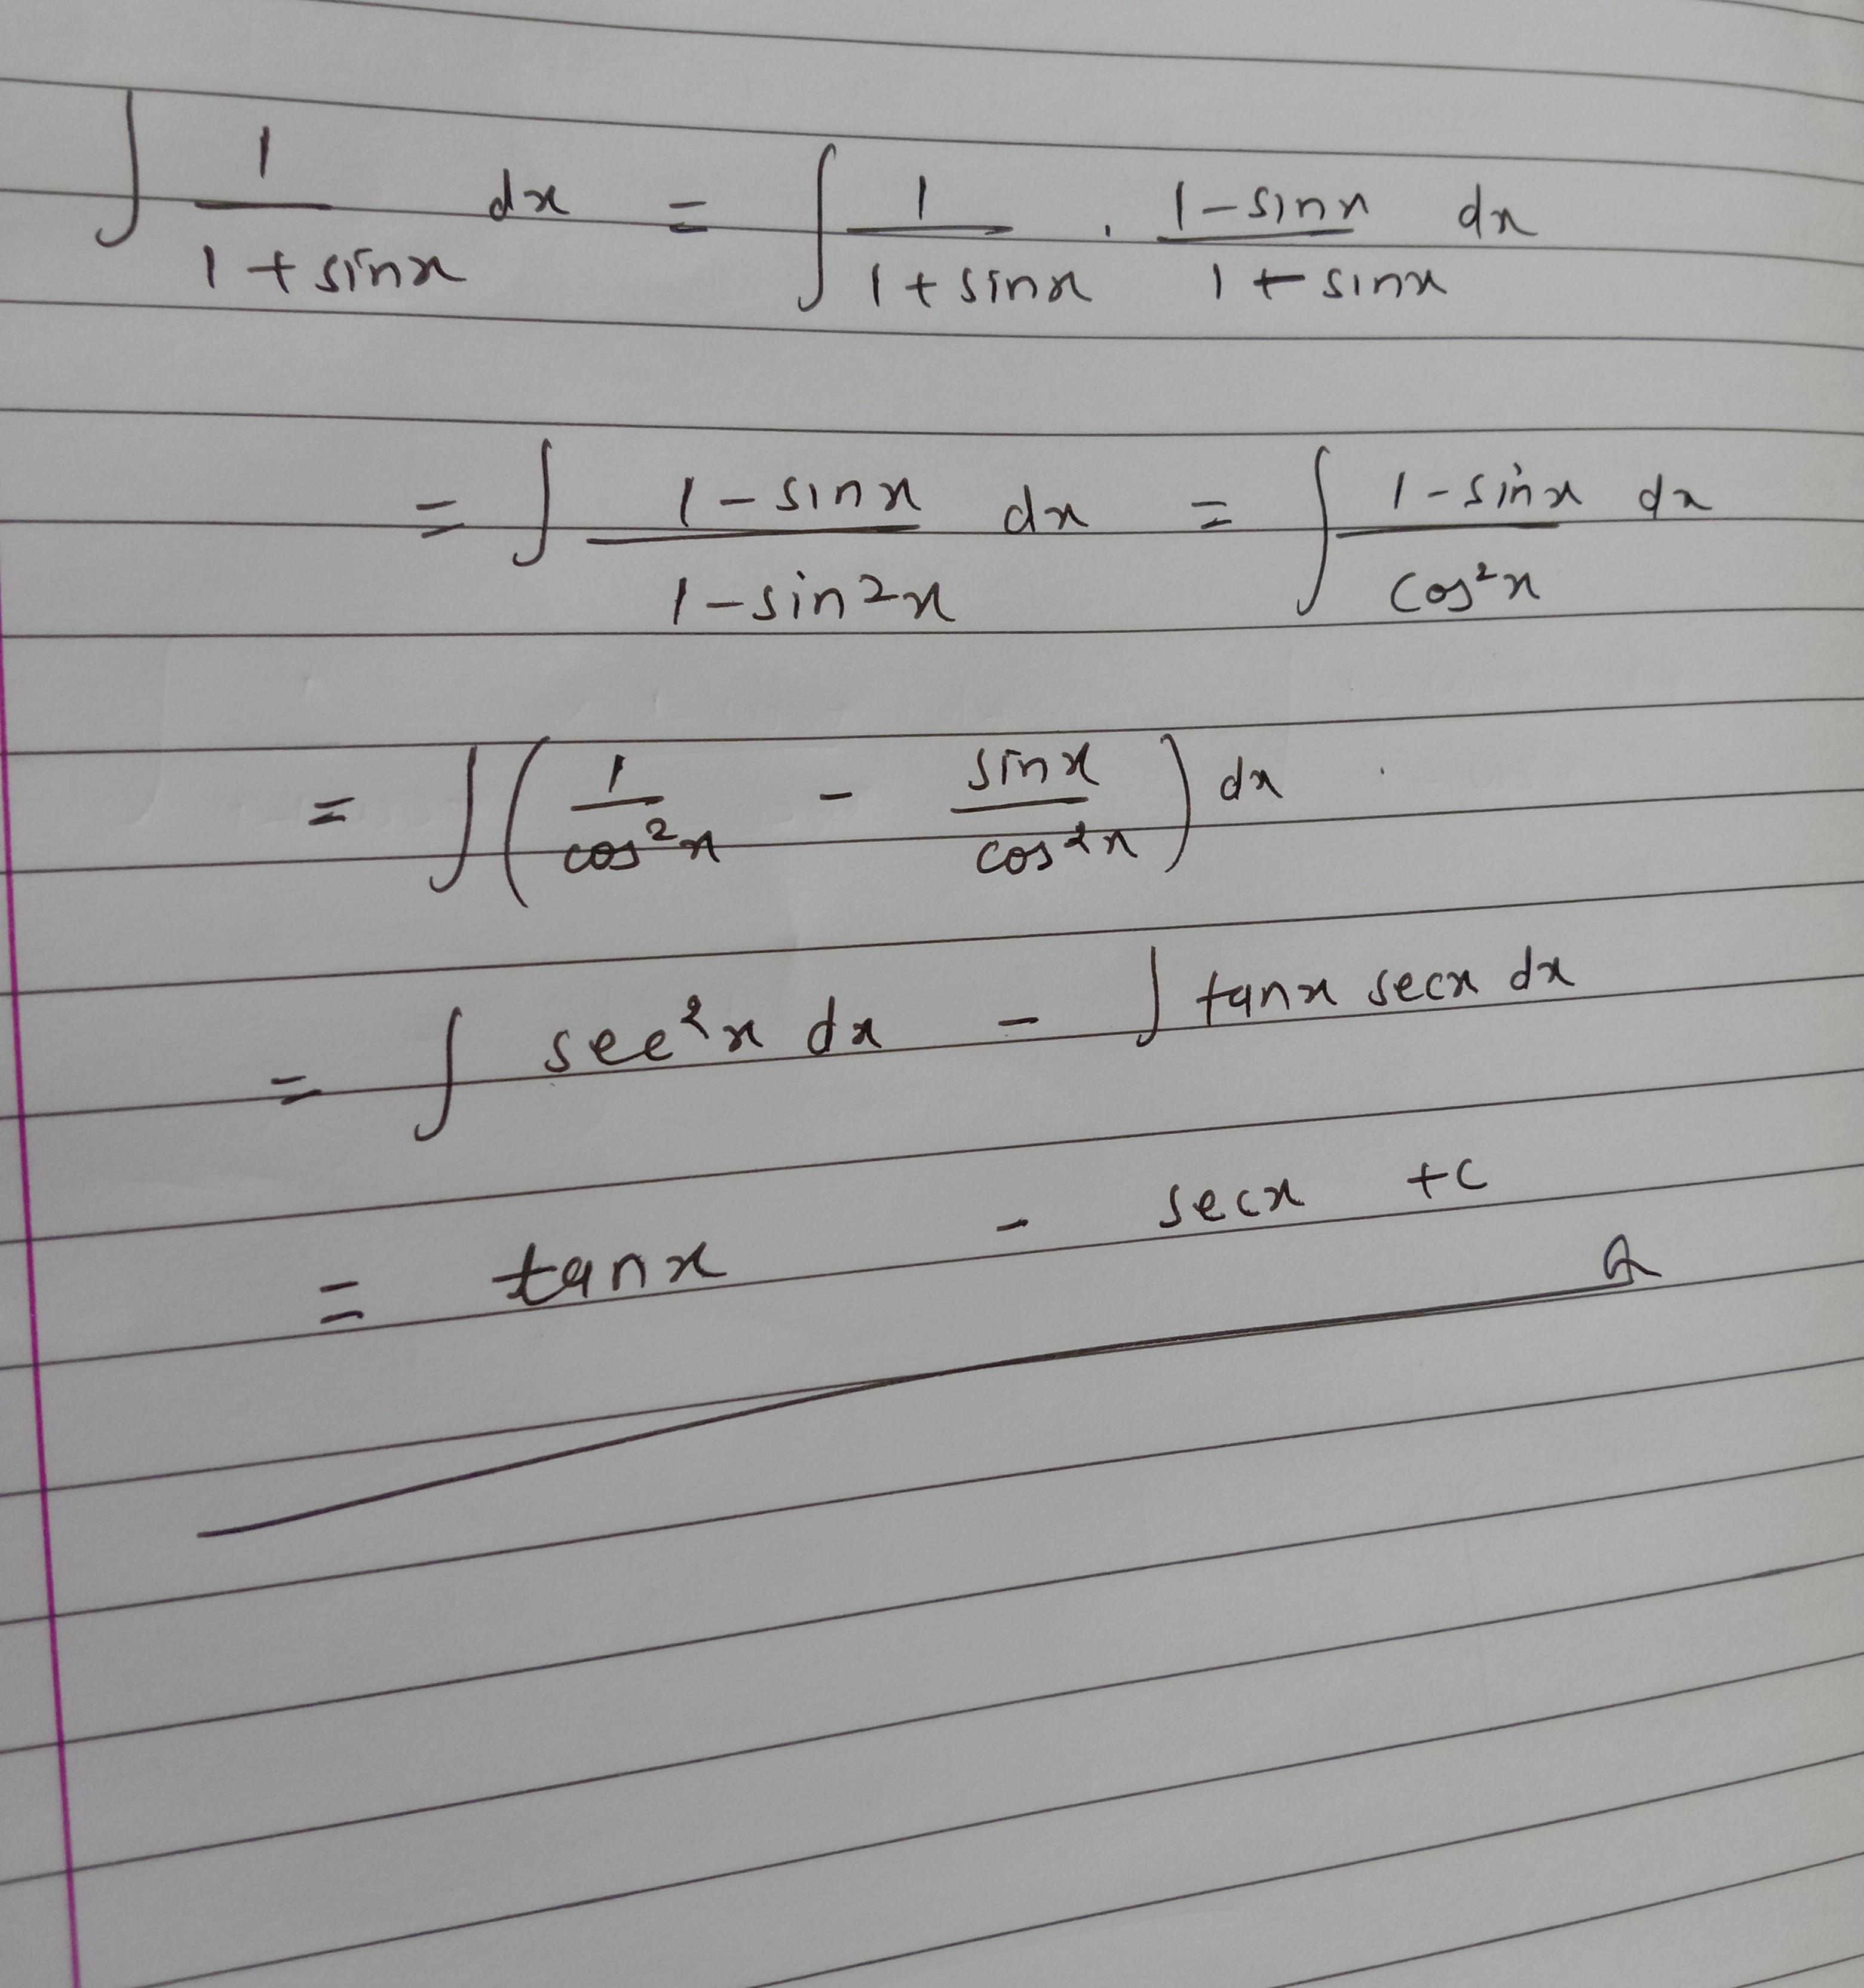 ∫ 1/(1+sinx) dx = ∫ 1/(1+sinx) . (1-sinx)/(1+sinx) dx
= ∫ (1-sinx)/(1-sin2x) dx = ∫ (1-sinx)/(cos²x) dx
= ∫ (1/cos²x - sinx/cos²x) dx
= ∫ see²x dx - ∫ tanx secx dx
= tanx - secx +c